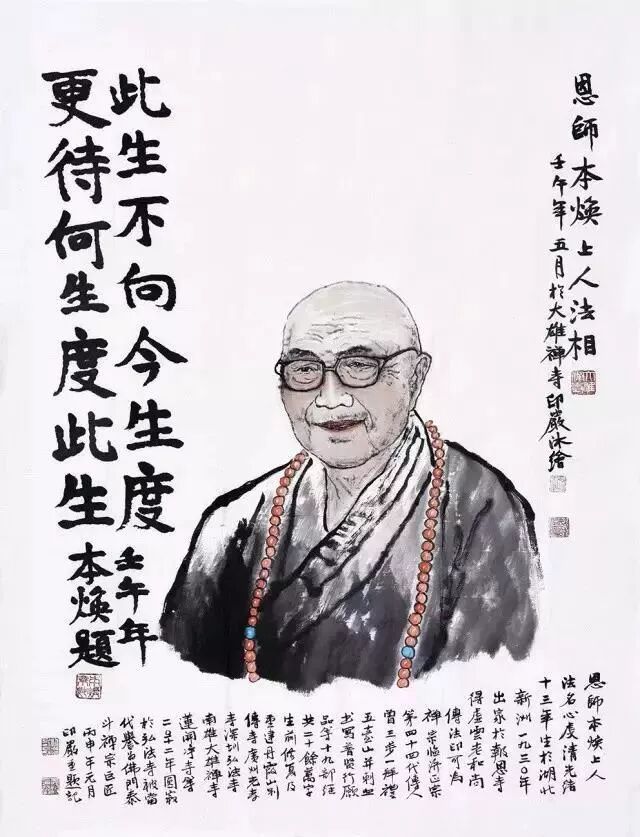 恩師本煥上人法相
壬午年五月於大雄禪寺印嚴沐繪
此生不向今生度
壬午年
更待何生度此生
本煥題
恩師本煥上人
法名心虔清光緒
十三年生於湖北
新洲一九三〇年
出家於報恩寺
得虛雲老和尚
傳法印可為
禪宗臨濟正宗
第四十四代傳人
曾三步一拜禮
五臺山并刺血
書寫普賢行願
品等十九部經
共二十餘萬字
生前修復及
重建丹霞山别
傳寺廣州光孝
寺深圳弘法寺
南雄大雄禪寺
蓮開淨寺等
二〇一二年圓寂
於弘法寺被當
代譽為佛門泰
斗禪宗巨匠
丙申年元月
印嚴重題記